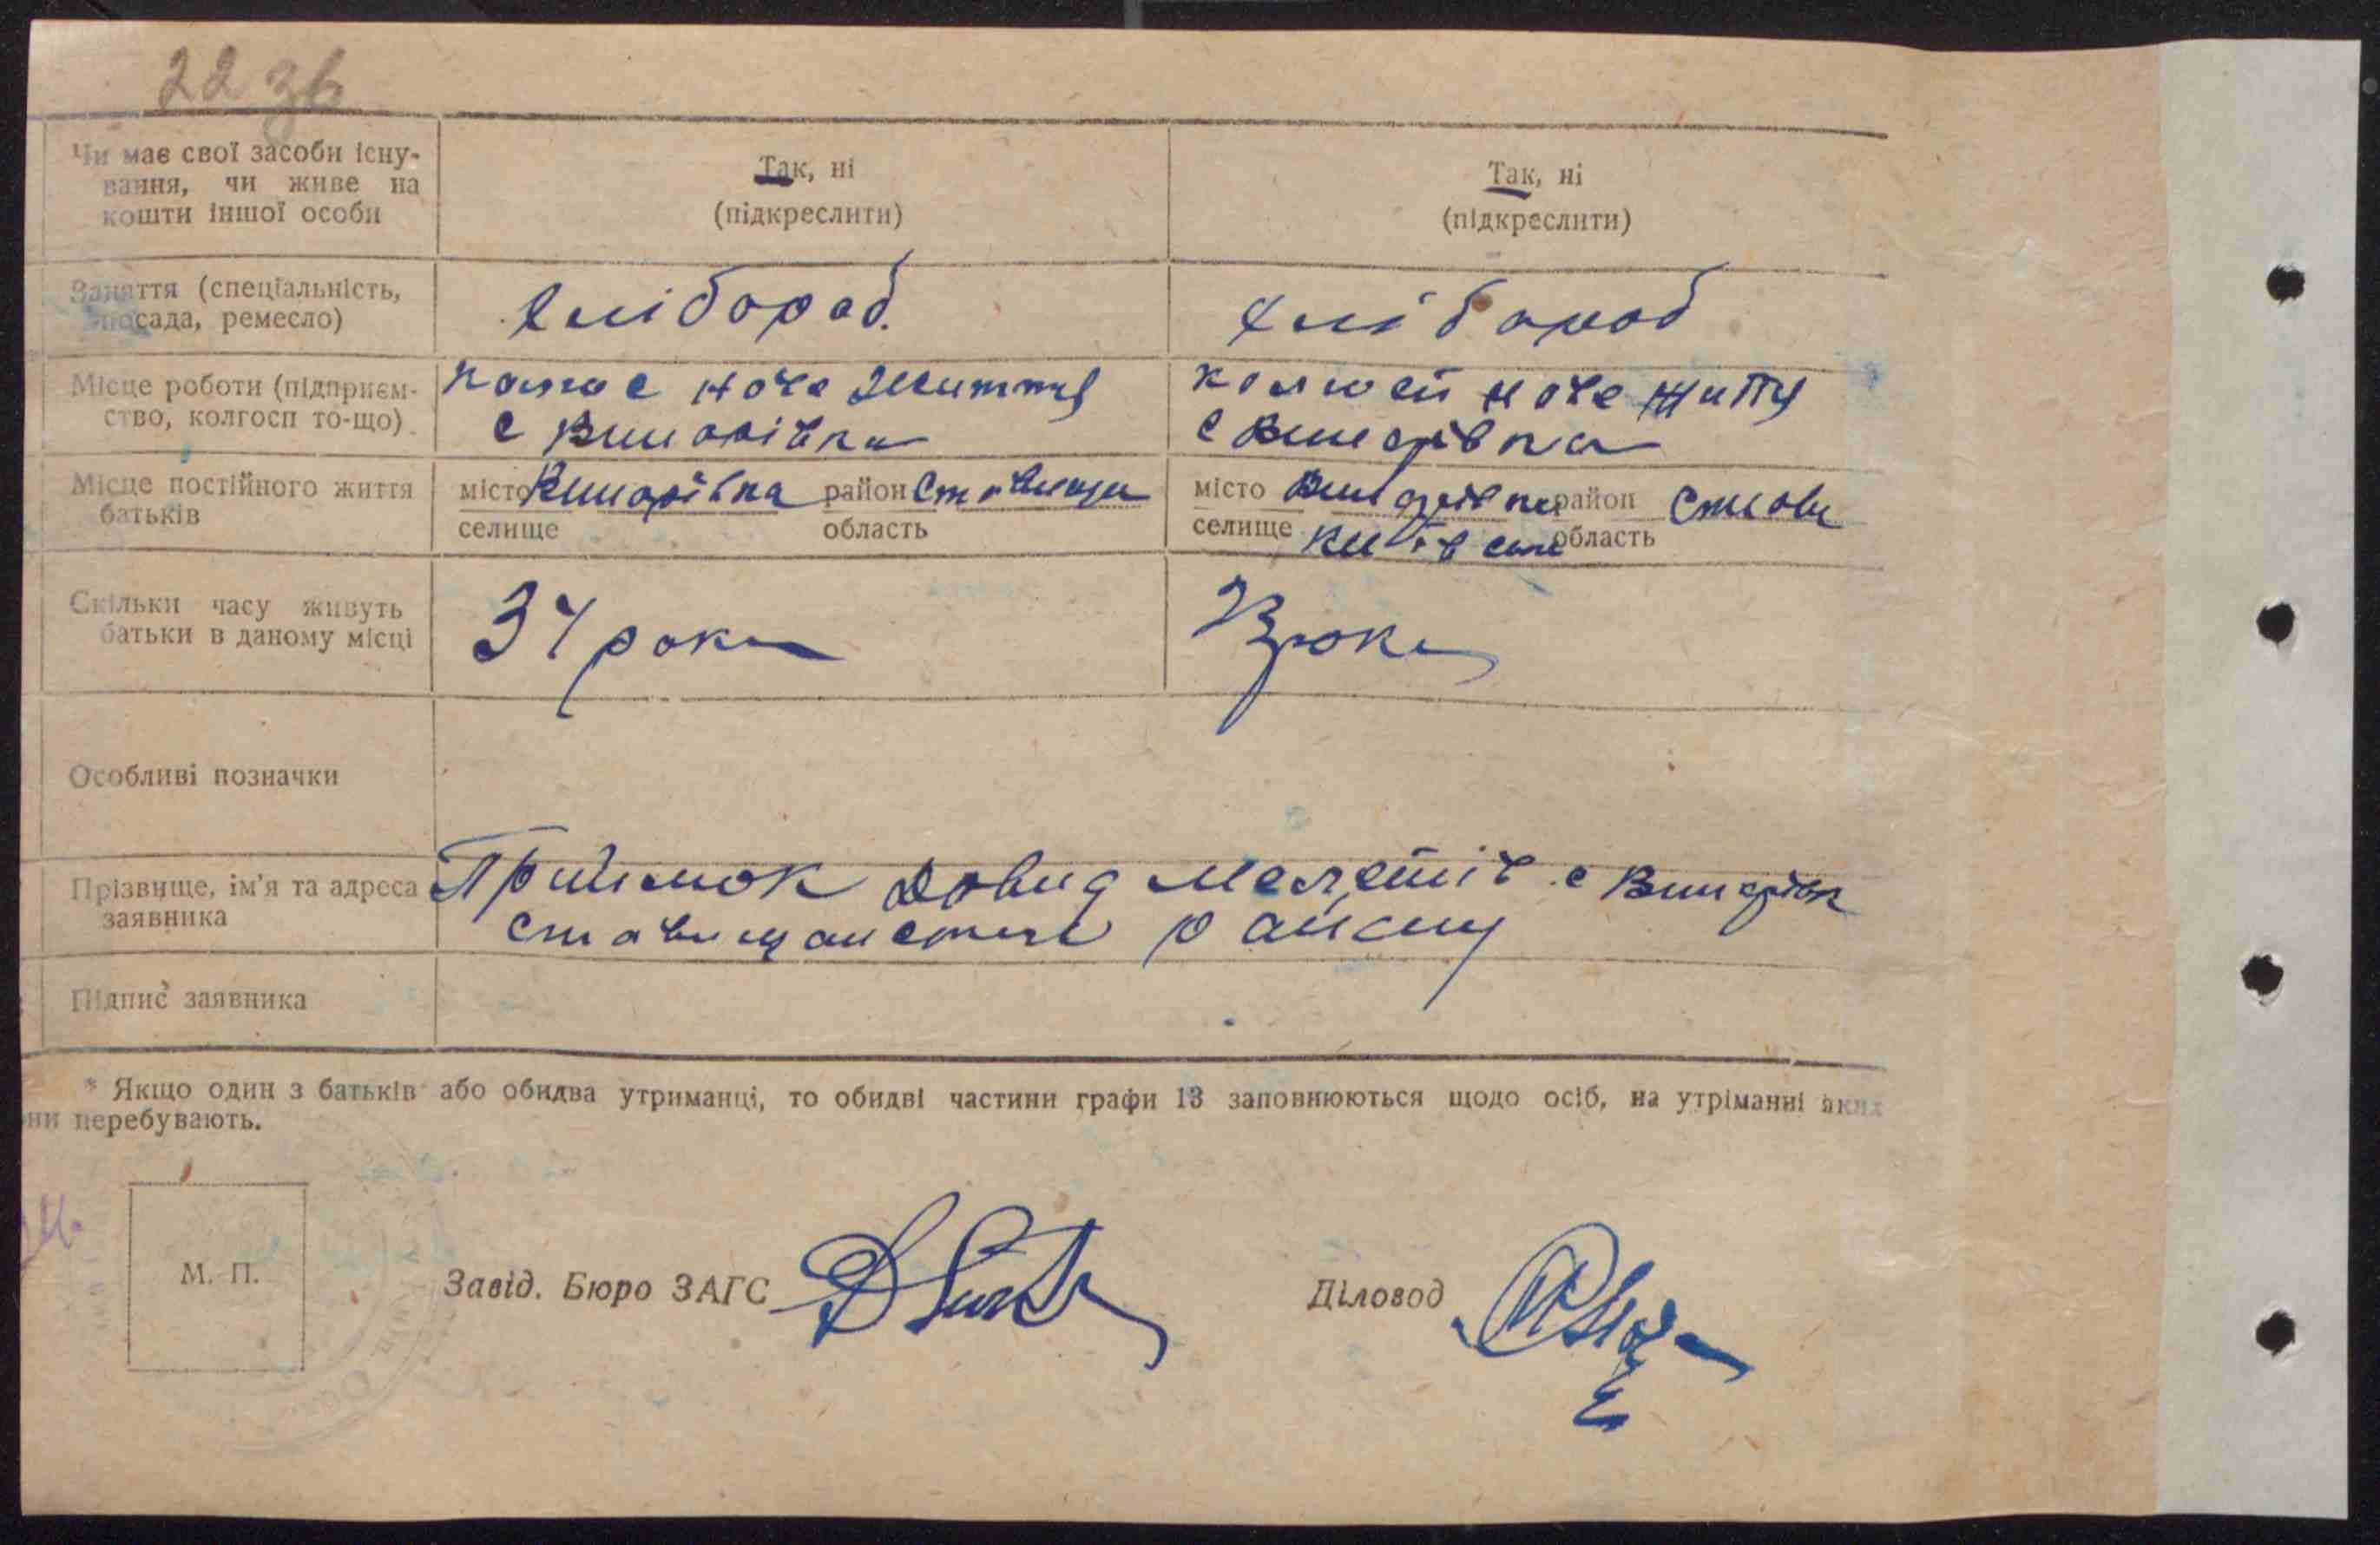 22 зв
Чи має свої засоби існу-
вання, чи живе на
кошти іншої особи
Так, ні
(підкреслити)
Так, ні
(підкреслити)
Заняття (спеціальність,
посада, ремесло)
Хлібороб.
Хлібороб
Місце роботи (підприєм-
ство, колгосп то-що)
нове життя
с Винарівка
нове життя
с Винарівка
Місце постійного життя
батьків
місто Винарівка район Ставище
селище область
місто Винарівка район Стави
селище Київська область
Скільки часу живуть
батьки в даному місці
34 роки
23 роки
Особливі позначки
Прізвище, ім'я та адреса
заявника
Приймок Довид Мелетів с Винарівк
Ставищанського району
Підпис заявника
* Якщо один з батьків або обидва утриманці, то обидві частини графи 13 заповнюються щодо осіб, на утріманні яких
они перебувають.
М. П.
Завід. Бюро ЗАГС
Діловод